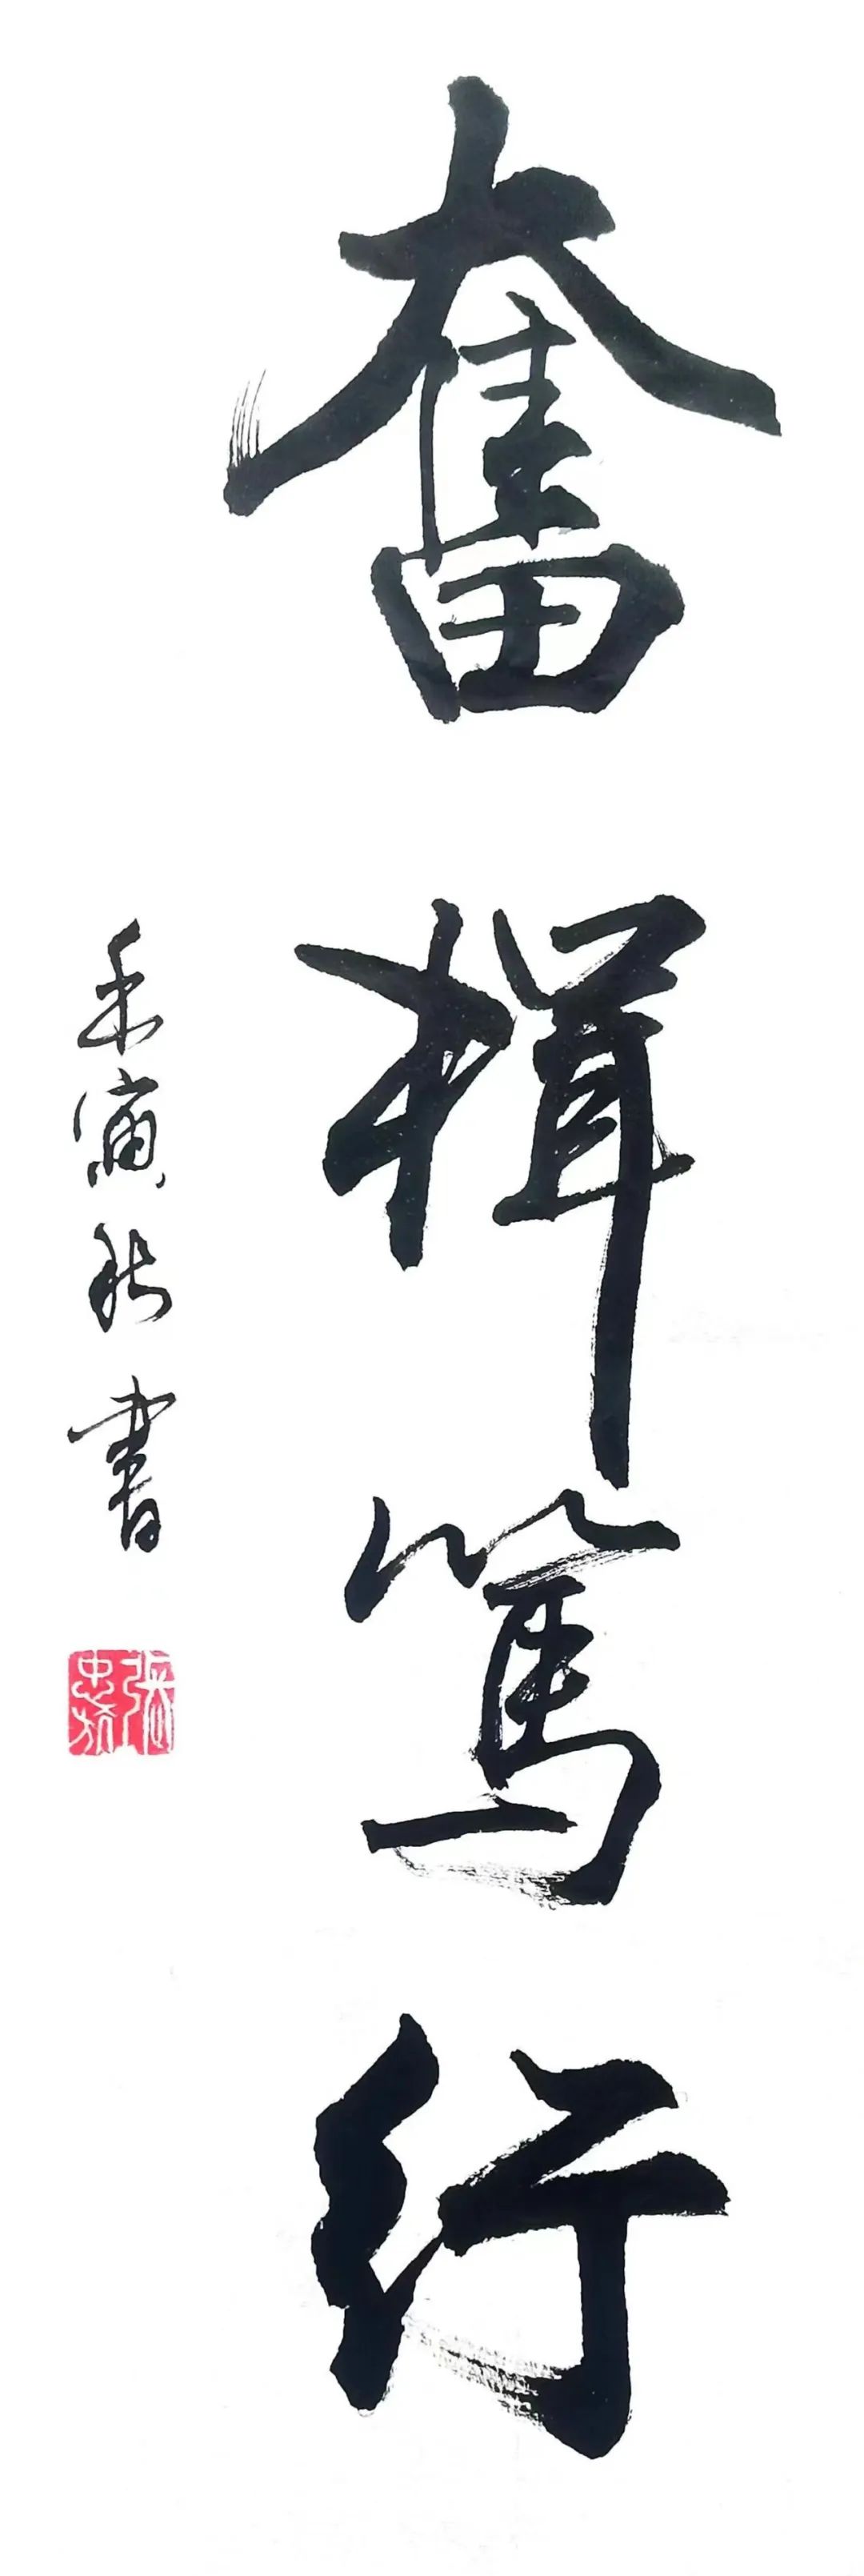 奮楫篤行
壬寅秋書